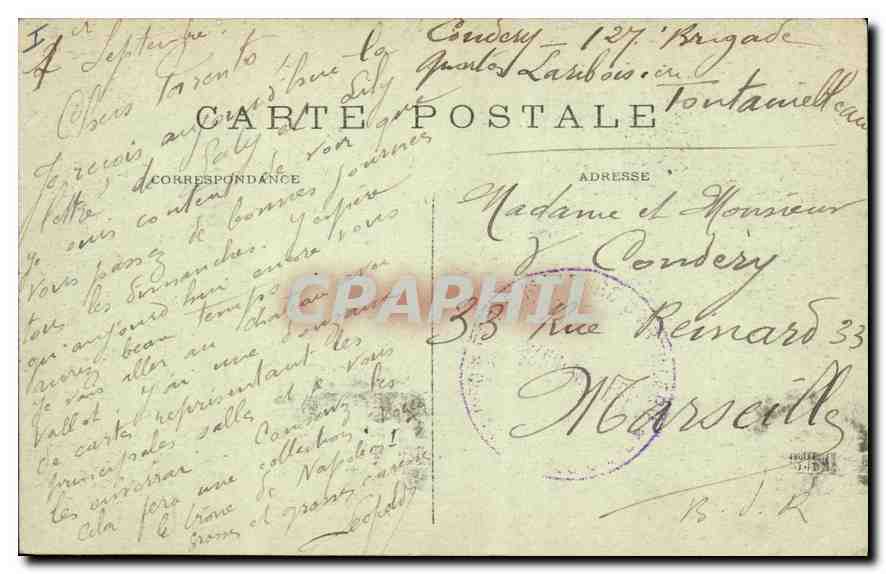 I
1er Septembre.
Chers Parents
Je reçois aujourd'hui la
lettre de Gaby et Lily
Je suis content de voir que
vous passez de bonnes journées
tous les dimanches. J'espère
qu'aujourd'hui encore vous
aurez beau temps.
Je vais aller au château, on
J'ai une douzaine
de cartes représentant les
principales salles et je vous
les enverrai. Conservez les
cela fera une collection.
le trône de Napoléon I
grosses et grasses caresses
Léopold
Condéry - 127. Brigade
Quartier Lariboisière
Fontainebleau
CARTE POSTALE
CORRESPONDANCE
ADRESSE
Madame et Monsieur
Condéry
33 Rue Reinard 33
Marseille
B. d. R
CPAPHIL